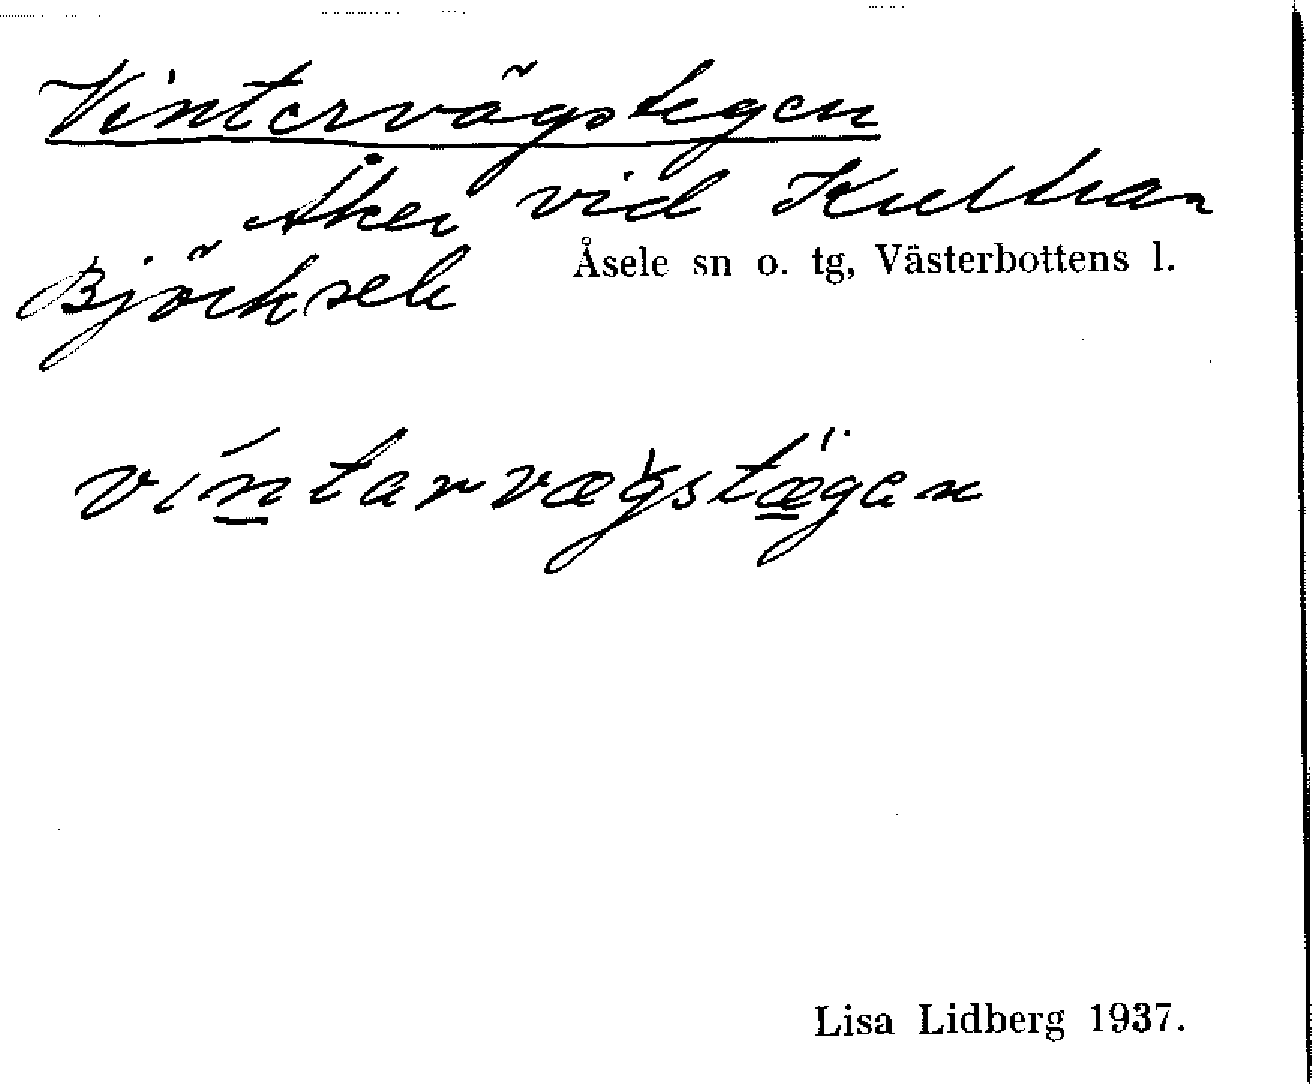 Vintervägstegen
Åker vid Kultran
Björksele
Åsele sn o. tg, Västerbottens l.
víntarvægstægan
Lisa Lidberg 1937.